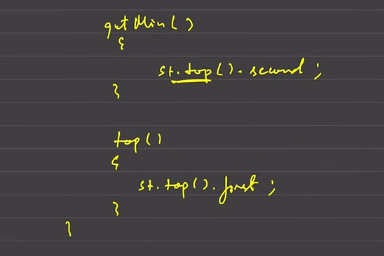 getMin()
{
st.top().second;
}
top()
{
st.top().first;
}
}